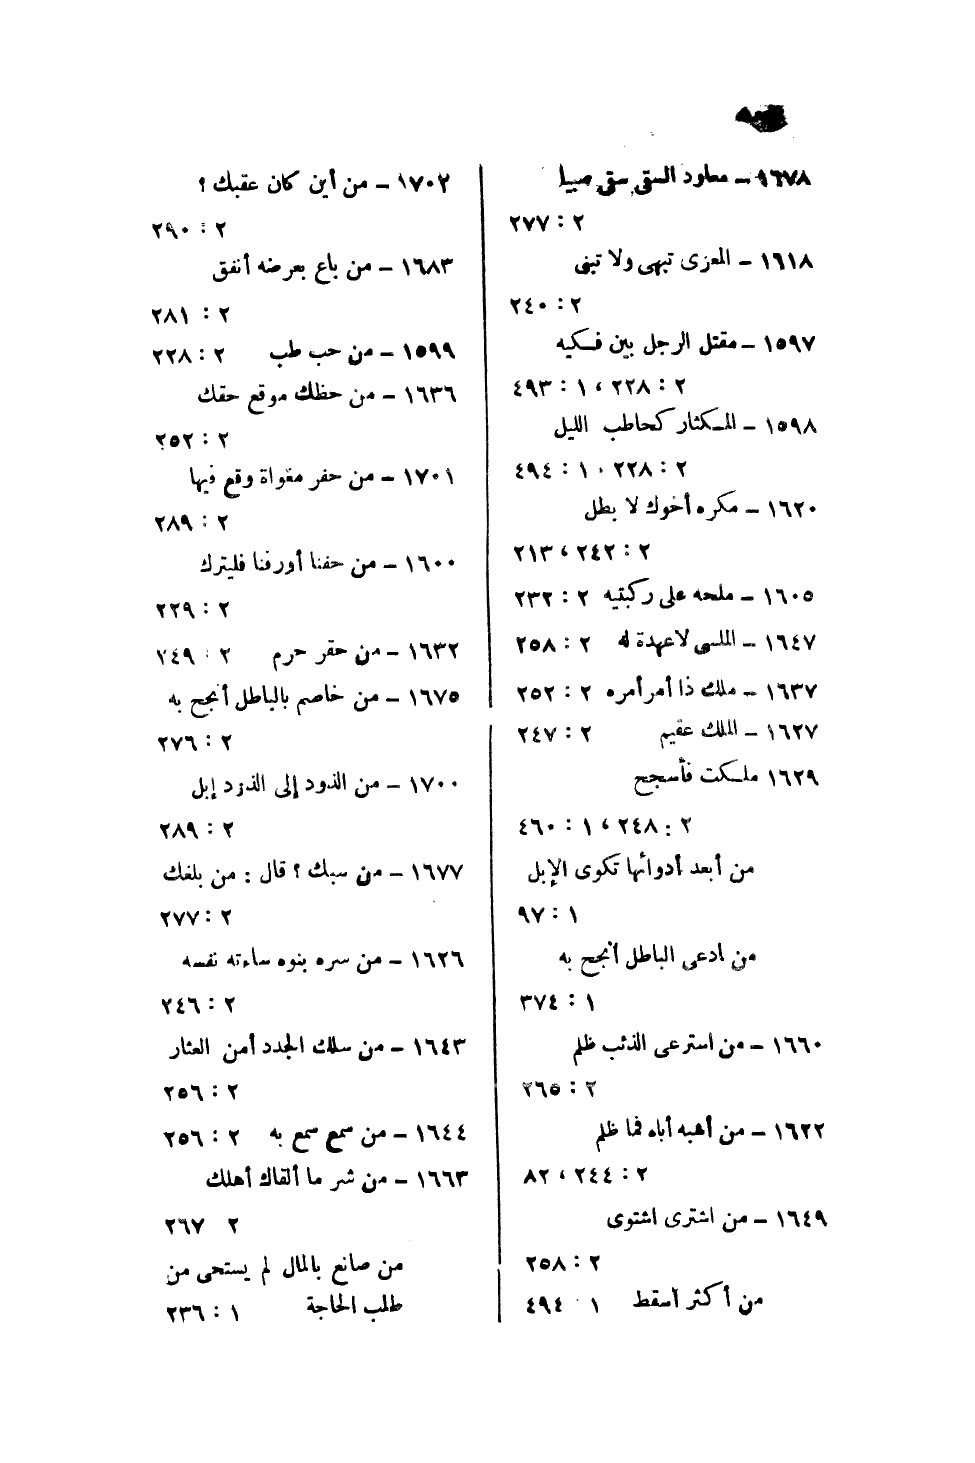 ١٦٧٨ – معاود السقى سقى صبيا
٢ : ٢٧٧
١٦١٨ – المعزى تبهى ولا تبنى
٢ : ٢٤٠
١٥٩٧ – مقتل الرجل بين فكيه
٢ : ٢٢٨ ، ١ : ٤٩٣
١٥٩٨ – المكثار كحاطب الليل
٢ : ٢٢٨ ، ١ : ٤٩٤
١٦٢٠ – مكره أخوك لا بطل
٢ : ٢٤٢ ، ٢١٣
١٦٠٥ – ملحه على ركبتيه ٢ : ٢٣٢
١٦٤٧ – الملسى لا عهدة له ٢ : ٢٥٨
١٦٣٧ – ملك ذا أمر أمره ٢ : ٢٥٢
١٦٢٧ – الملك عقيم ٢ : ٢٤٧
١٦٢٩ ملكت فأسجح
٢ : ٢٤٨ ، ١ : ٤٦٠
من أبعد أدوائها تكوى الإبل
١ : ٩٧
من ادعى الباطل أنجح به
١ : ٣٧٤
١٦٦٠ – من استرعى الذئب ظلم
٢ : ٢٦٥
١٦٢٢ – من أشبه أباه فما ظلم
٢ : ٢٤٤ ، ٨٢
١٦٤٩ – من اشترى اشتوى
٢ : ٢٥٨
من أكثر أسقط ١ ٤٩٤
١٧٠٢ – من أين كان عقبك ؟
٢ : ٢٩٠
١٦٨٣ – من باع بعرضه أنفق
٢ : ٢٨١
١٥٩٩ – من حب طب ٢ : ٢٢٨
١٦٣٦ – من حظك موقع حقك
٢ : ٢٥٢
١٧٠١ – من حفر مغواة وقع فيها
٢ : ٢٨٩
١٦٠٠ – من حفنا أو رفنا فليترك
٢ : ٢٢٩
١٦٣٢ – من حقر حرم ٢ : ٢٤٩
١٦٧٥ – من خاصم بالباطل أنجح به
٢ : ٢٧٦
١٧٠٠ – من الذود إلى الذود إبل
٢ : ٢٨٩
١٦٧٧ – من سبك ؟ قال : من بلغك
٢ : ٢٧٧
١٦٢٦ – من سره بنوه ساءته نفسه
٢ : ٢٤٦
١٦٤٣ – من سلك الجدد أمن العثار
٢ : ٢٥٦
١٦٤٤ – من سمع سمع به ٢ : ٢٥٦
١٦٦٣ – من شر ما ألقاك أهلك
٢ ٢٦٧
من صانع بالمال لم يستحى من
طلب الحاجة ١ : ٢٣٦